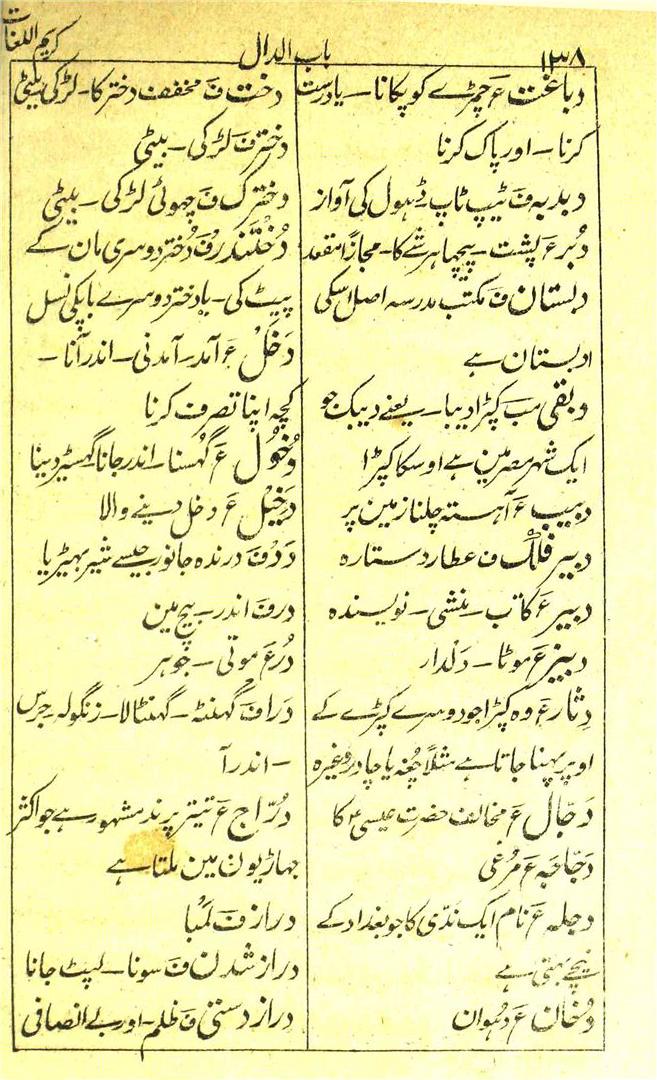 ۱۳۸
باب الدال
کریم اللغات
دباغت ع چمڑے کو پکانا ۔ یا درست
کرنا ۔ اور پاک کرنا
دبدبہ ف ٹیپ ٹاپ ۔ ڈہول کی آواز
دُبر ع پشت ۔ پیچھا ہر شے کا ۔ مجازاً مقعد
دبستان ف مکتب مدرسہ اصل اسکی
ادبستان ہے
دبقی ب کپڑا دیبا ۔ یعنے دیبک جو
ایک شہر مصر مین ہے اوسکا کپڑا
دبیب ع آہستہ چلنا زمین پر
دبیر فلک ف عطارد ستارہ
دبیر ع کاتب ۔ منشی ۔ نویسندہ
دبیز ع موٹا ۔ دلدار
دِثار ع وہ کپڑا جو دوسرے کپڑے کے
اوپر پہنا جاتا ہے مثلاً چُغہ یا چادر وغیرہ
دَجّال ع مخالف حضرت عیسیٰ ؑ کا
دَجاجہ ع مرُغی
دجلہ ع نام ایک ندّی کا جو بغداد کے
نیچے بہتی ہے
دُخان ع دہوان
دخت ف مخفف دختر کا ۔ لڑکی بیٹی
دختر ف لڑکی ۔ بیٹی
دخترک ف چھوٹی لڑکی ۔ بیٹی
دُخْتَنْدَر ف دُختر دوسری مان کے
پیٹ کی ۔ یا دختر دوسرے باپکی نسل
دَخَلْ ع آمد ۔ آمدنی ۔ اندر آنا ۔
کچہ اپنا تصرف کرنا
دُخُول ع گہُسنا ۔ اندر جانا گہسیڑ دینا
دَخِیْل ع دخل دینے والا
دَدْ ف درندہ جانور جیسے شیر بہیڑیا
در ف اندر ۔ بیچ مین
دُرّ ع موتی ۔ جوہر
دَرا ف گہنٹہ ۔ گہنٹالا ۔ زنگولہ جرس
۔ اندر آ
دُرّاج ع تیتر پرند مشہور ہے جو اکثر
جہاڑیون مین ملتا ہے
دراز ف لمَبْا
دراز شدن ف سونا ۔ لیٹ جانا
دراز دستی ف ظلم ۔ اور بے انصافی